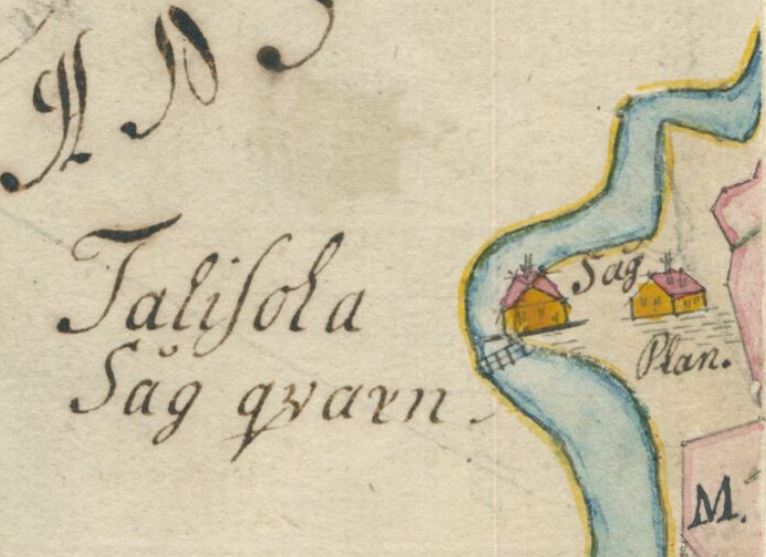 Talisola
Såg qvarn
Såg
Plan.
M.